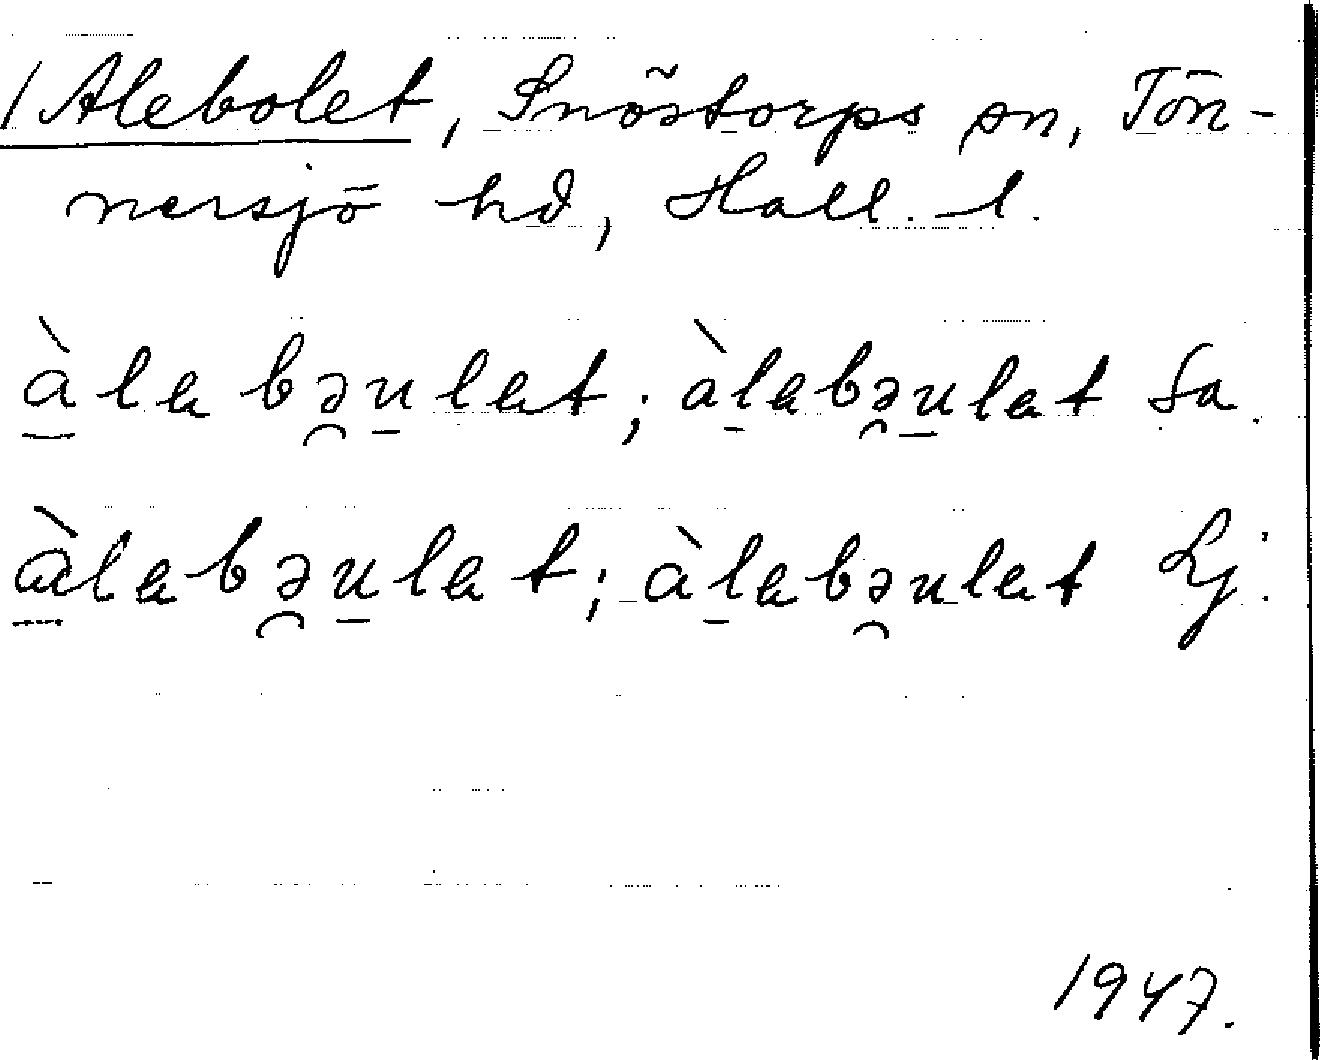 /Alebolet, Snöstorps sn, Tön-
nersjö hd, Hall. l.
à̱lebə̯u̱let; àḻebə̯u̱let Sa.
à̱lebə̯u̱let; àḻebə̯ulet Lj.
1947.